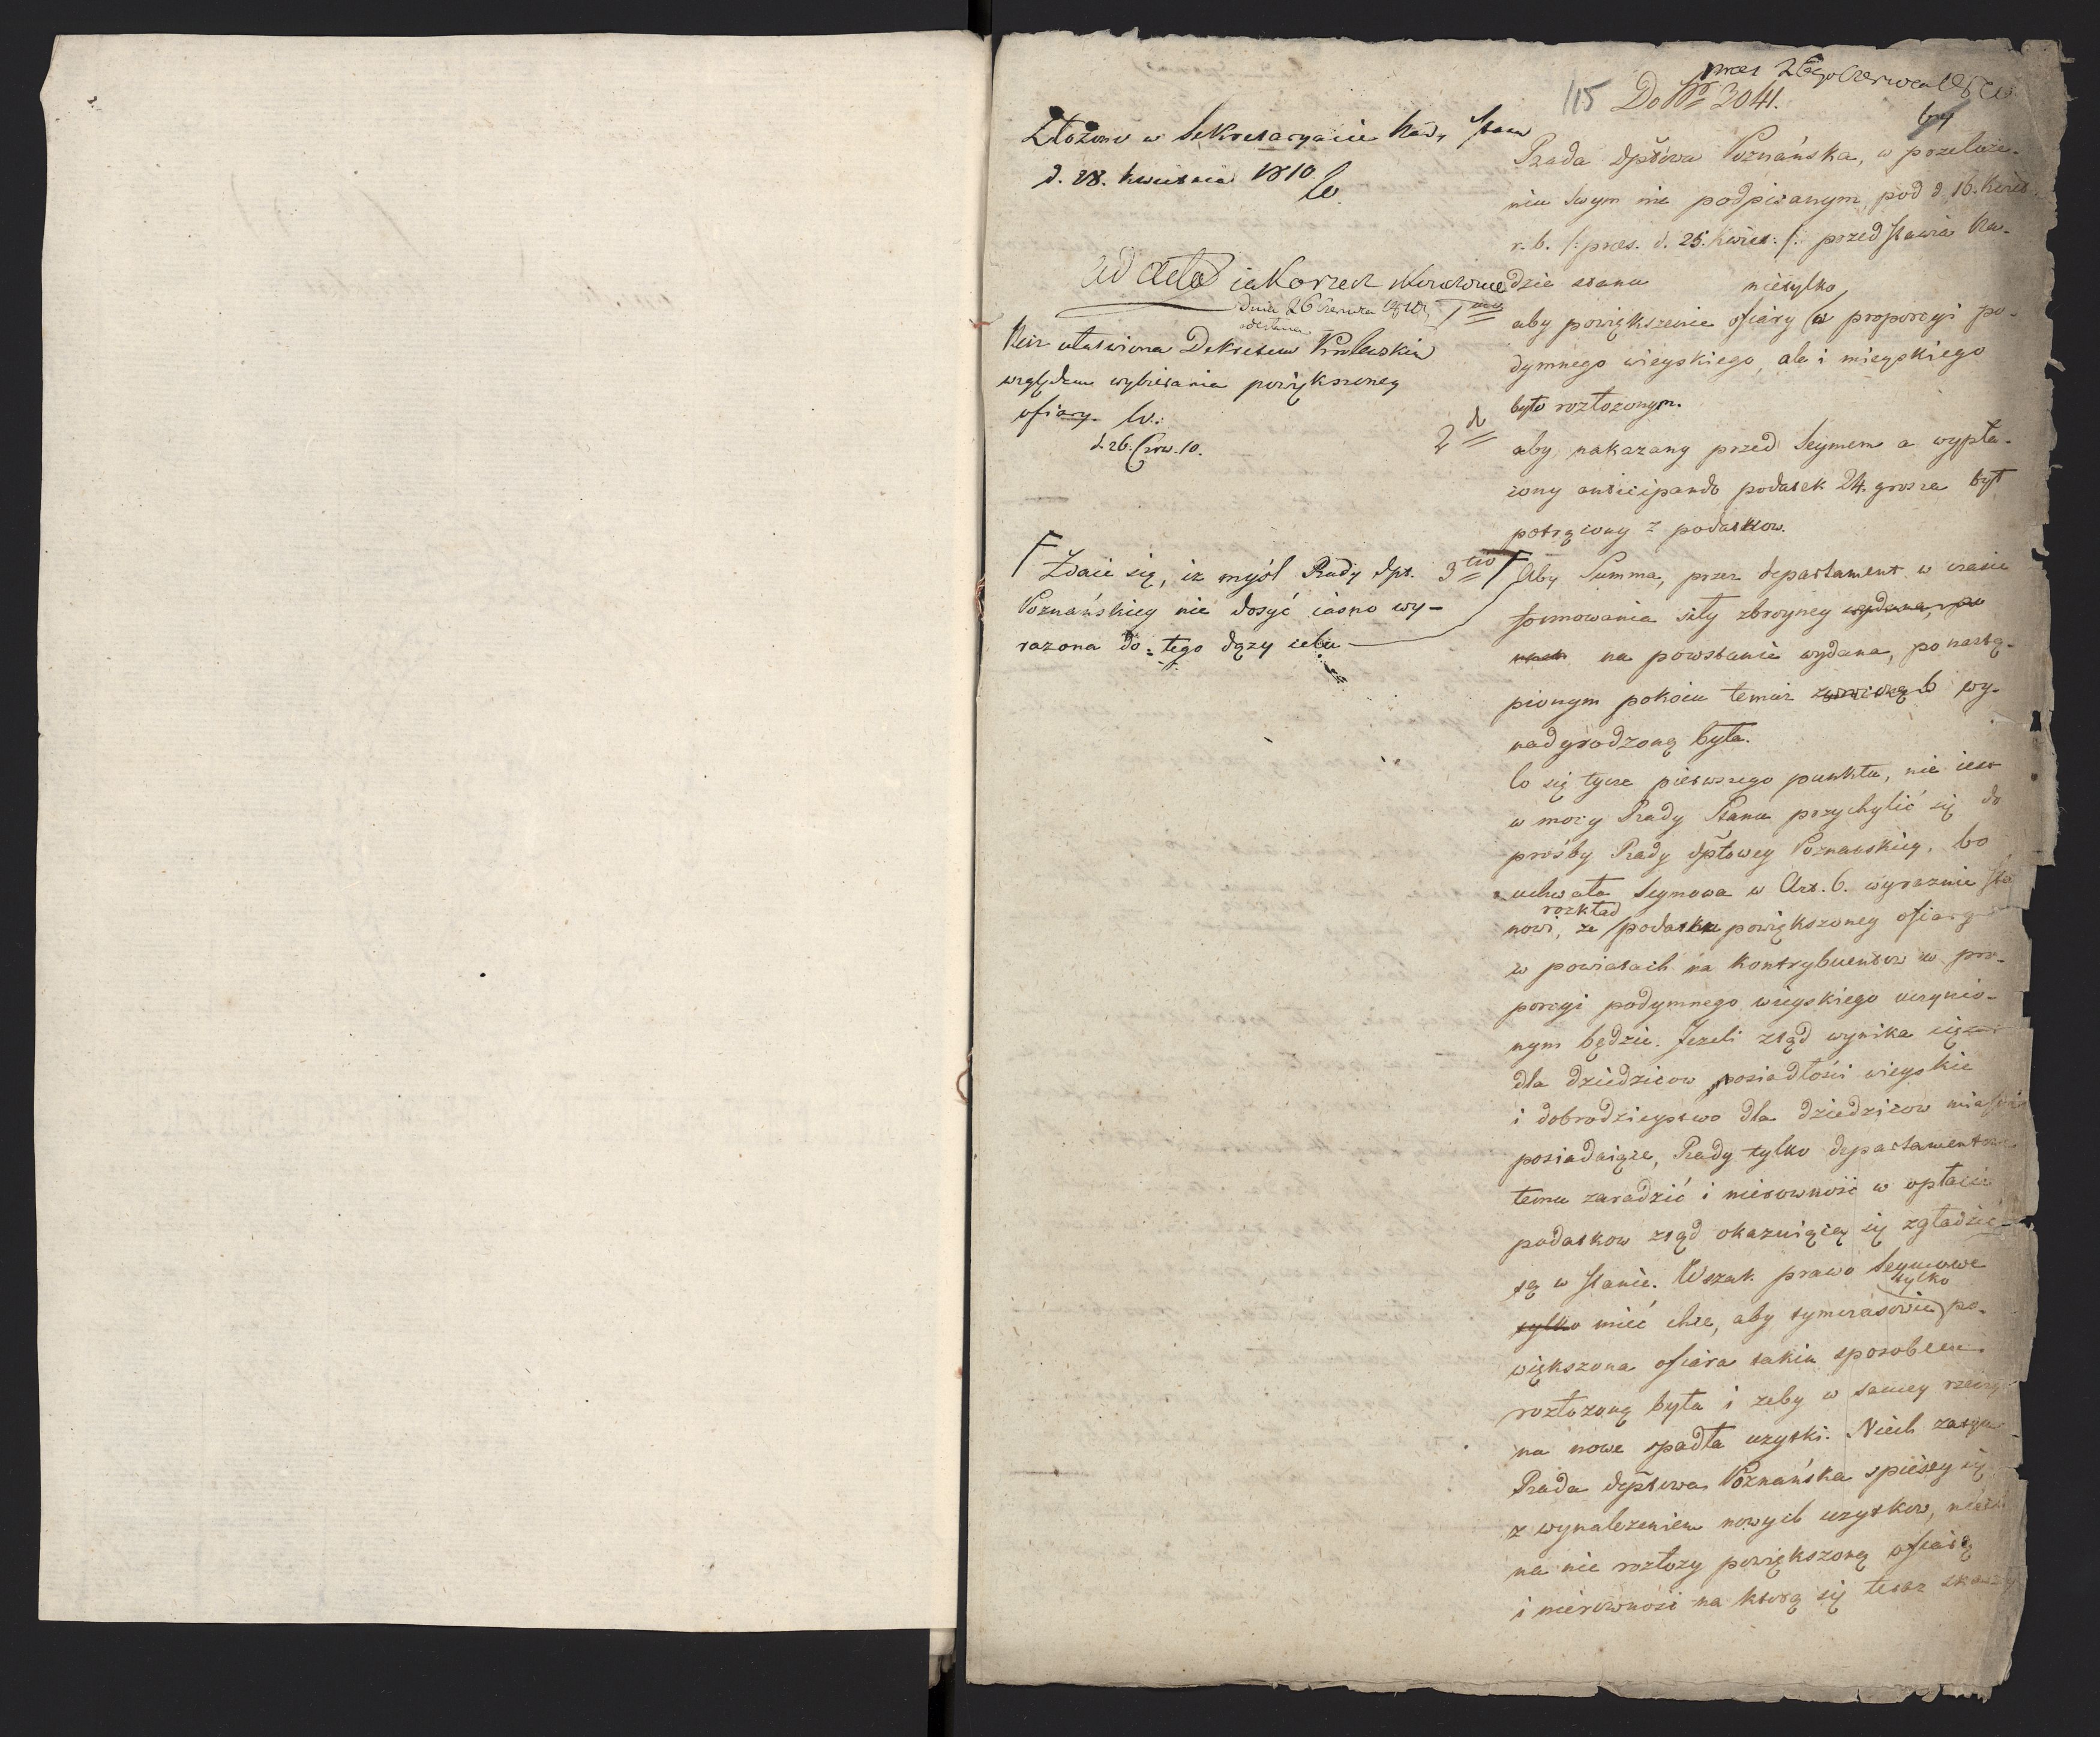 pres 26go Czerwca
115 Do No 3041.
Złożono w Sekretaryacie Rady Stanu
d. 28. kwietnia 1810.
Ad acta iako rzecz skończona
dnia 26 Czerwca 1810
Rzecz ułatwiona Dekretem Królewskim
względem wybierania powiększoney
ofiary.
d. 26. Czrw. 10.
Zdaie się, iż myśl Rady dpt.
Poznańskiey nie dosyć iasno wy-
rażona do tego dąży celu
Rada dptowa Poznańska, w przełoże-
niu swym nie podpisanym, pod d. 16. kwiet.
r. b. /: pres. d. 25. kwiet: /: przedstawia Ra-
dzie stanu
1mo nietylko
aby powiększenie ofiary w proporcyi po-
dymnego wieyskiego, ale i mieyskiego
było rozłożonym.
2do
aby nakazany przed Seymem a wypła-
cony anticipando podatek 24. grosza był
potrącony z podatkow.
3tio Aby Summa, przez departament w czasie
formowania siły zbroyney wydana,
na powstanie wydana, po nastą-
pionym pokoiu temuż wy-
nadgrodzoną była.
Co się tycze pierwszego punktu, nie iest
w mocy Rady Stanu przychylić się do
prośby Rady dptowey Poznanskiey, bo
uchwała Seymowa w Art. 6. wyraznie sta
rozkład
nowi, że podatku powiększoney ofiary
w powiatach na kontrybuentow w pro-
porcyi podymnego wieyskiego uczynio-
nym będzie. Jeżeli ztąd wynika
dla dziedzicow posiadłości wieyskie
i dobrodzieystwo dla dziedzicow miasta
posiadaiące, Rady tylko departamentowe
temu zaradzić i nierowność w opłacie
podatkow ztąd okazuiącą się zgładzić
są w stanie. Wszak prawo Seymowe
tylko
tylko mieć chce, aby tymczasowie po-
większona ofiara takim sposobem
rozłożoną była i żeby w samey rzeczy
na nowe spadła użytki. Niech zatym
Rada dptowa Poznańska spieszy się
z wynalezieniem nowych użytkow, niech
na nie rozłoży powiększoną ofiarę
i nierowność na którą się teraz skarży